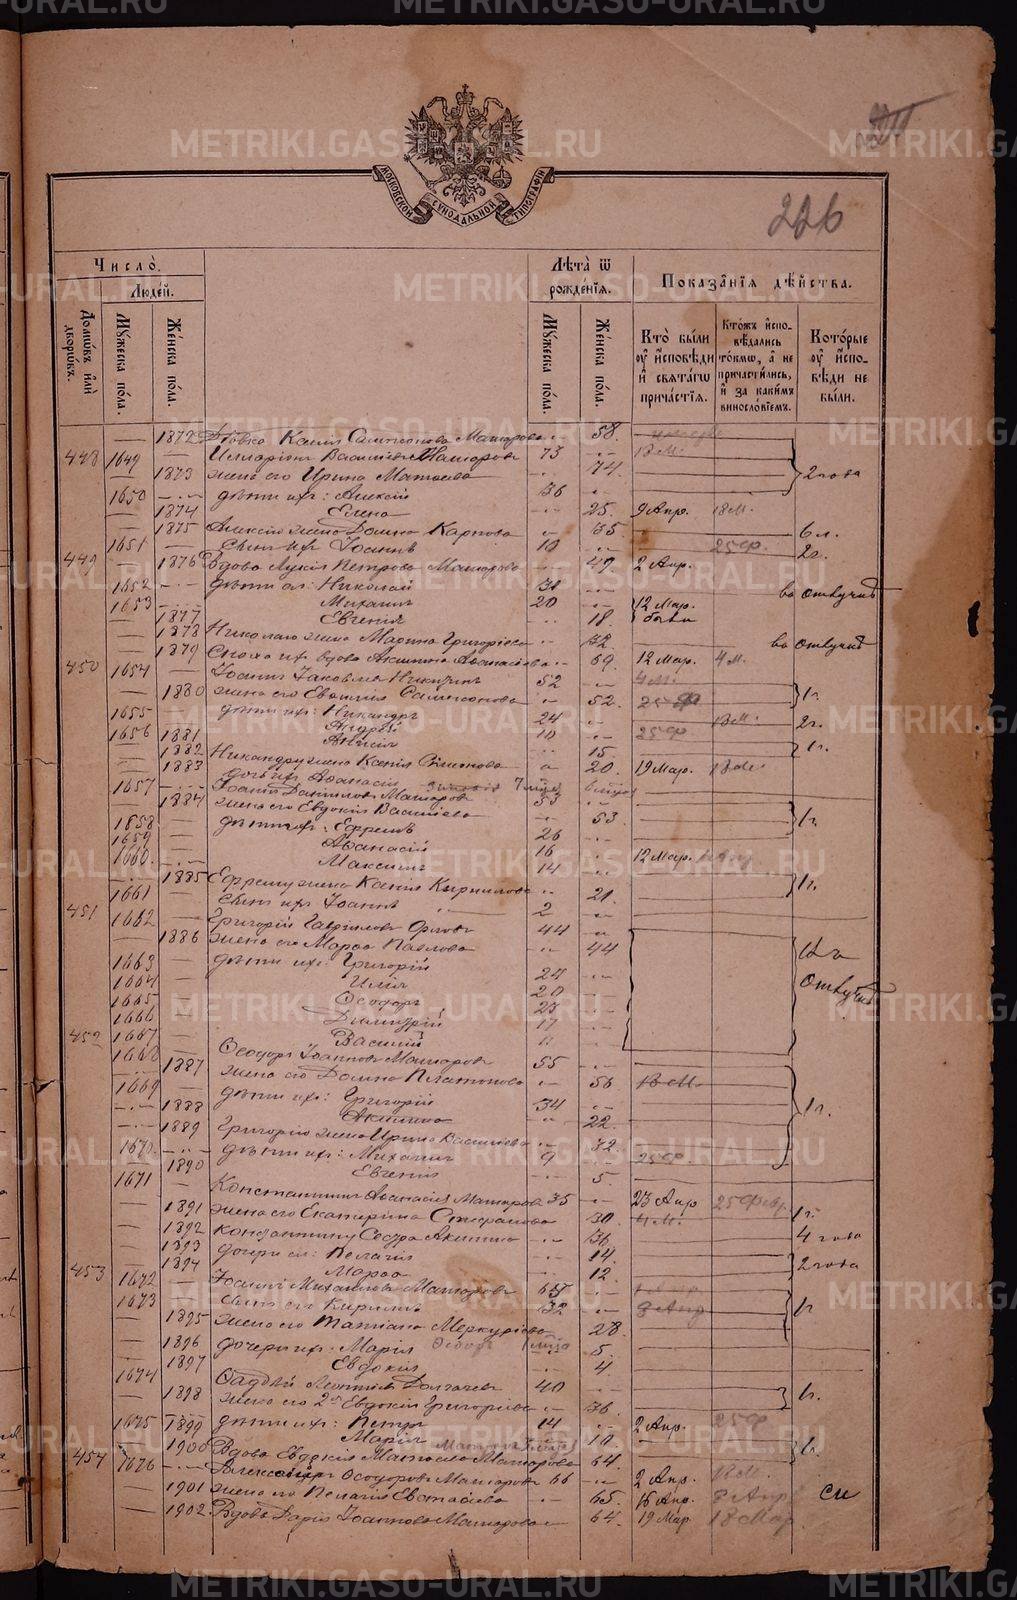 226
МОСКОВСКОЙ СѴНОДАЛЬНОЙ ТИПОГРАФІИ
Число̀.
Люде́й.
Домѡ́въ и҆лѝ дворѡ́въ.
Мꙋ́жеска по́ла.
Же́нска по́ла.
Лѣ́та ѿ рожде́нїѧ.
Мꙋ́жеска по́ла.
Же́нска по́ла.
Показа̑нїѧ дѣ́йства.
Кто̀ бы́ли ᲂу҆ и҆́сповѣди и҆ свѧта́гѡ прича́стїѧ.
Кто́жъ и҆спо-вѣ́дались то́кмѡ, а҆ не причасти́лись, и҆ за каки́мъ винослѡ́вїемъ.
Кото́рые ᲂу҆ и҆́спо-вѣди не бы́ли.
1872 Дѣвка Ксенія Сампсонова Машарова 58
448 1649 Илларіонъ Василіевъ Машаровъ 73 18 М.
1873 жена его Ирина Матѳеева 74 2 года
1650 дѣти ихъ: Алексій 36
1874 Елена 25 9 Апр. 18 М.
1875 Алексію жена Домна Карпова 35 6 л.
1651 сынъ ихъ Іоаннъ 10 25 Ф. 2 г.
449 1876 Вдова Лукія Петрова Машарова 49 2 Апр.
1652 дѣти ея: Николай 31 въ отлучкѣ
1653 Михаилъ 20 12 Мар.
1877 Евгенія 18 были
1878 Николаю жена Марина Григоріева 32 въ отлучкѣ
1879 Сноха ихъ вдова Акилина Аѳанасіева 69 12 Мар. 4 М.
450 1654 Іоаннъ Іаковлевъ Никитинъ 52 4 М.
1880 жена его Евѳимія Сампсонова 52 25 Ф 1 г.
1655 дѣти ихъ: Никандръ 24 18 М. 2 г.
1656 Андрей 10 25 Ф
1881 Анисія 1 г.
1882 15
1883 Никандру жена Ксенія Симонова 20 19 Мар. 18 М.
дочь ихъ Аѳанасія
1657 Іоаннъ Даніиловъ Машаровъ 53
1884 жена его Евдокія Василіева 53 1 г.
1658 дѣти ихъ: Ефремъ 26
1659 Аѳанасій 16
1660 Максимъ 14 12 Мар.
1885 Ефрему жена Ксенія Кириллова 21 1 г.
1661 сынъ ихъ Іоаннъ 2
451 1662 Григорій Гавриловъ Орловъ 44
1886 жена его Марѳа Павлова 44
1663 дѣти ихъ: Григорій 24 отлучкѣ
1664 Илія 20
1665 Ѳеодоръ 23
1666 Димитрій 17
1667 Василій 11
452 1668 Ѳеодоръ Іоанновъ Машаровъ 55
1887 жена его Домна Платонова 56 18 М.
1669 дѣти ихъ: Григорій 34 1 г.
1888 Акилина 22
1889 Григорію жена Ирина Василіева 32
1670 дѣти ихъ: Михаилъ 9 25 Ф.
1890 Евгенія 5
1671 Константинъ Аѳанасіевъ Машаровъ 35 23 Апр 25 Февр.
1891 жена его Екатерина Стефанова 30 4 М. 1 г.
1892 Константину сестра Акилина 36 4 года
1893 дочери ея: Пелагія 14
1894 Марѳа 12 2 года
453 1672 Іоаннъ Михаиловъ Машаровъ 65
1673 сынъ его Кириллъ 32 1 г
1895 жена его Татіана Меркуріева 28
1896 дочери ихъ: Марія Ѳедоръ 5
1897 Евдокія 4
1674 Ѳаддей Леонтіевъ Долгачевъ 40
1898 жена его 2я Евдокія Григоріева 36 1 г.
1675 1899 дѣти ихъ: Петръ 14 2 Апр. 25 Ф
Марія 10
454 1900 Вдова Евдокія Матѳеева Машарова 64 1 г.
1676 Александръ Ѳеодоровъ Машаровъ 66 2 Апр. 18 М.
1901 жена его Пелагія Евстаѳіева 65 16 Апр.
1902 Вдова Дарія Іоаннова Машарова 64 19 Мар 18 Мар.
METRIKI.GASO-URAL.RU